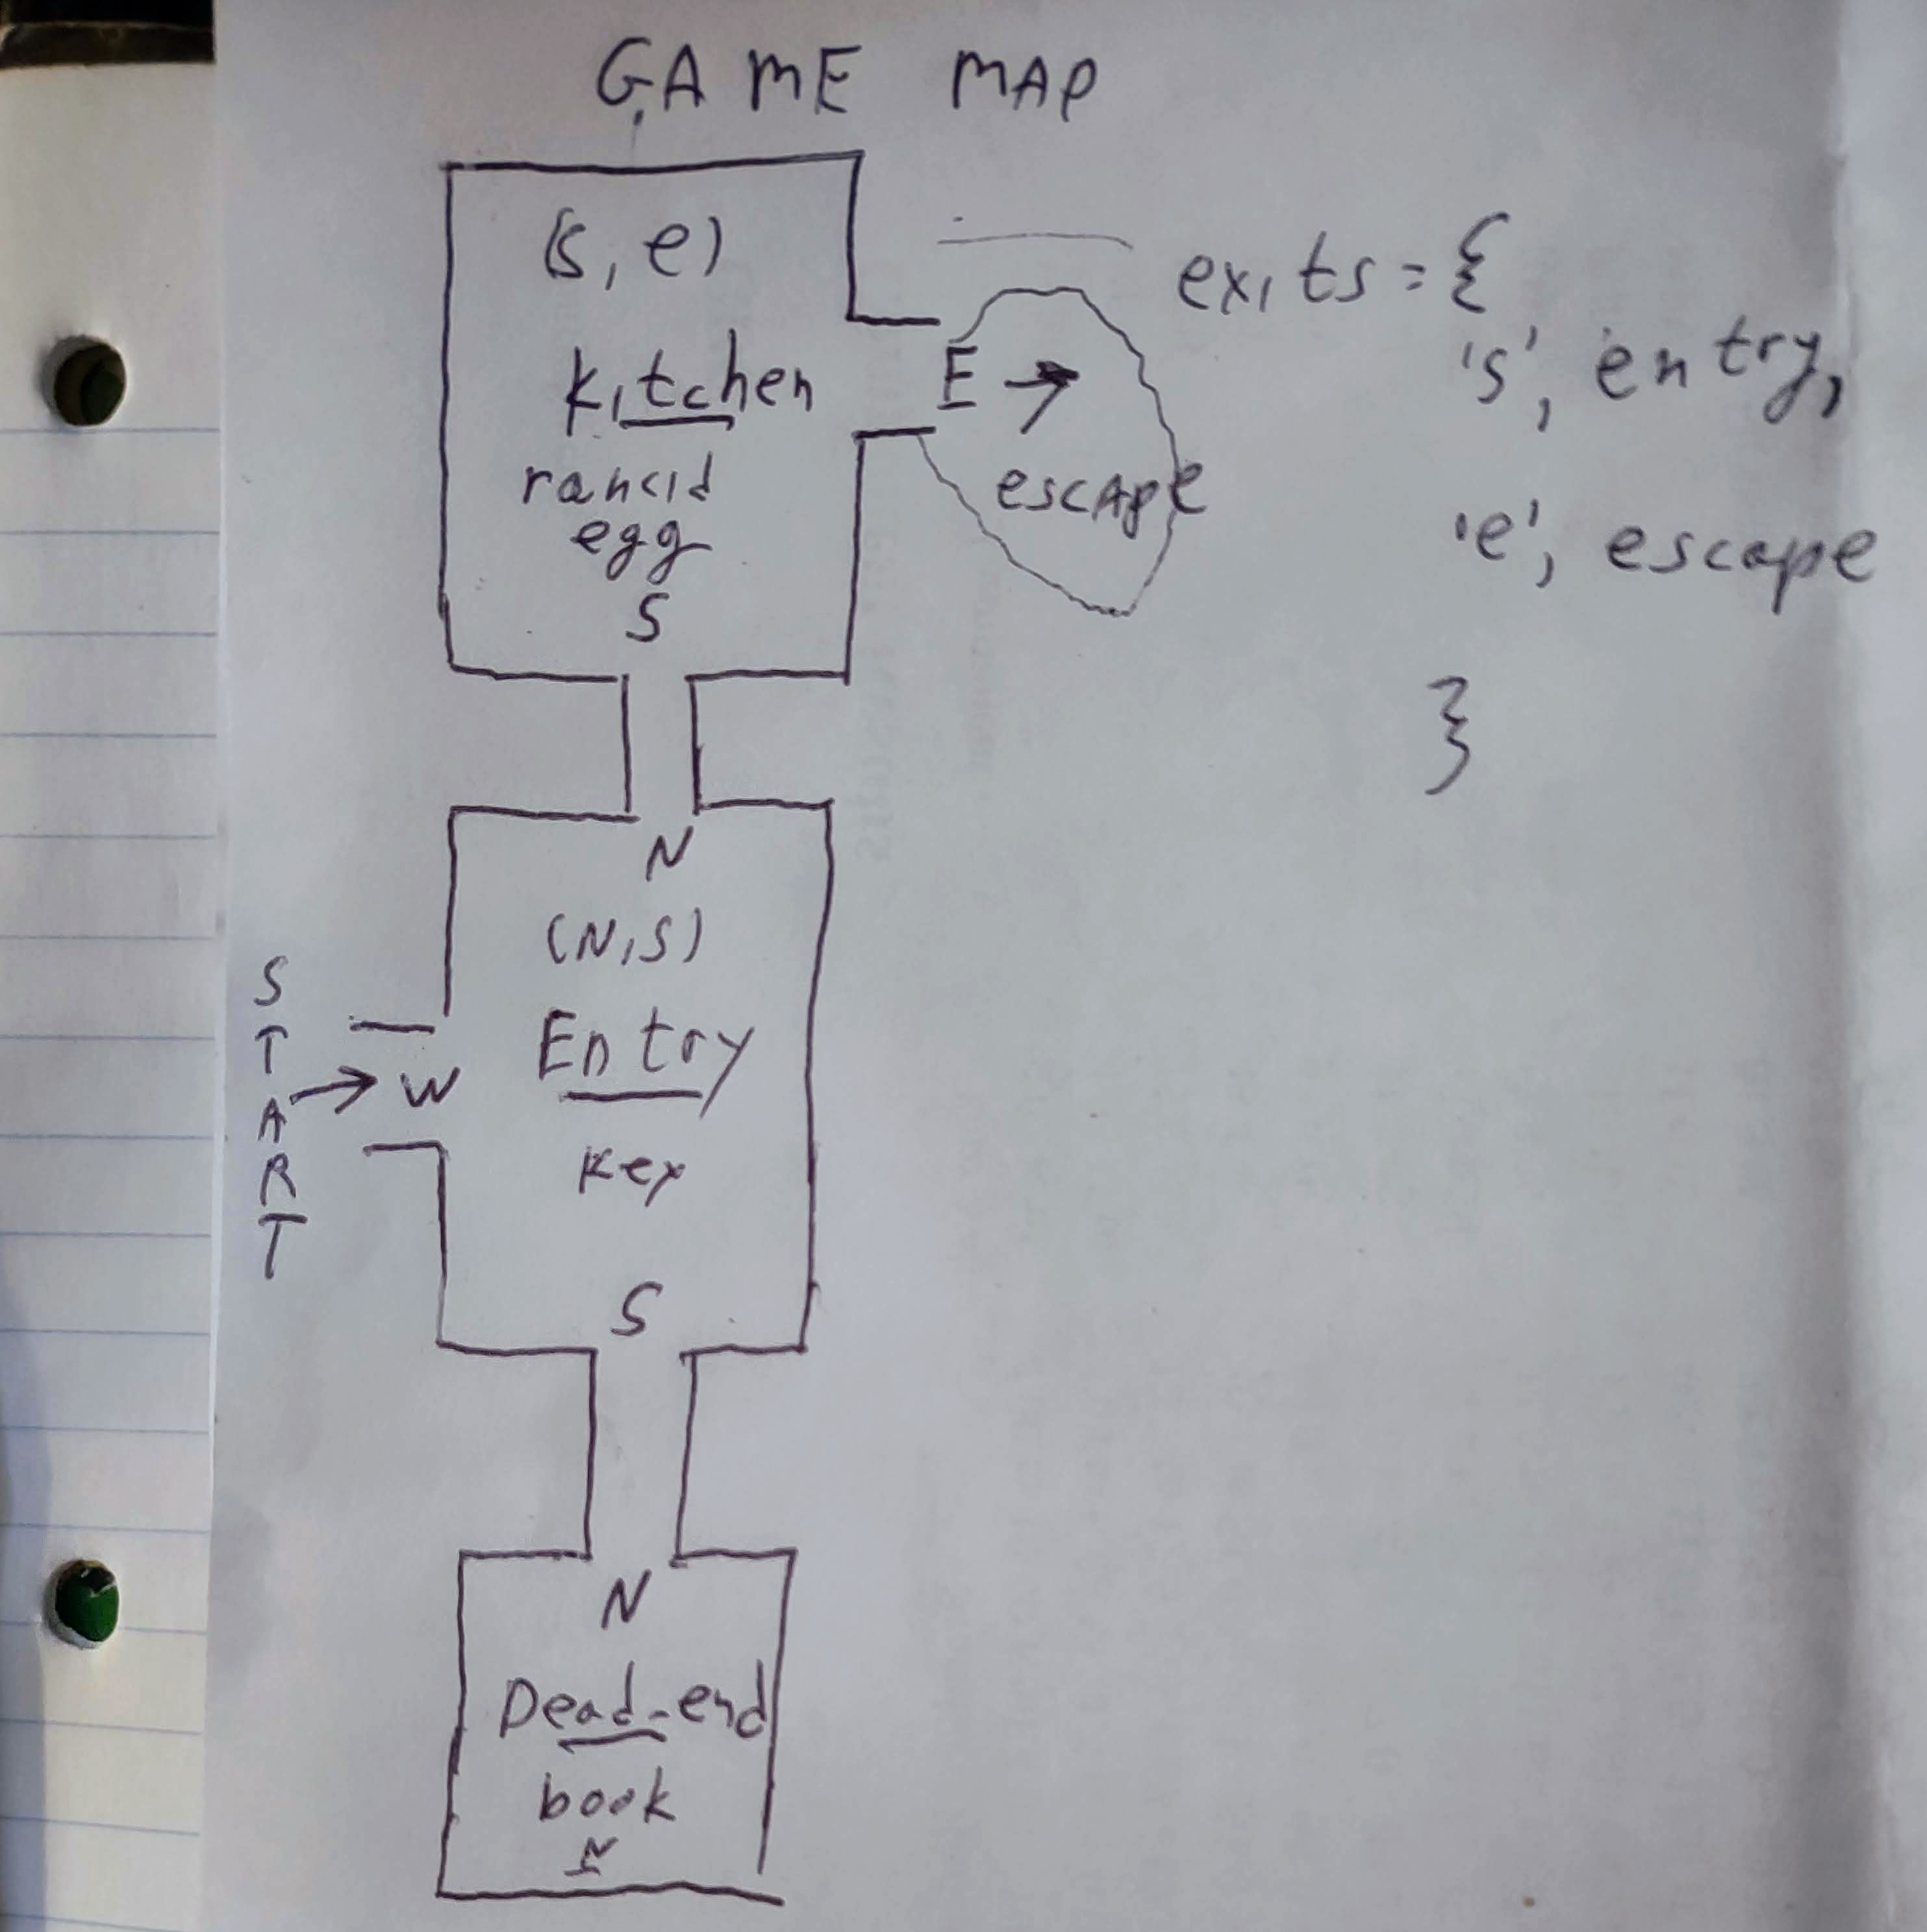 GAME MAP
(s, e)
kitchen
rancid
egg
S
E →
escape
exits = {
's', entry,
'e', escape
}
N
(N, S)
Entry
key
S
START
→ W
N
Dead-end
book
N